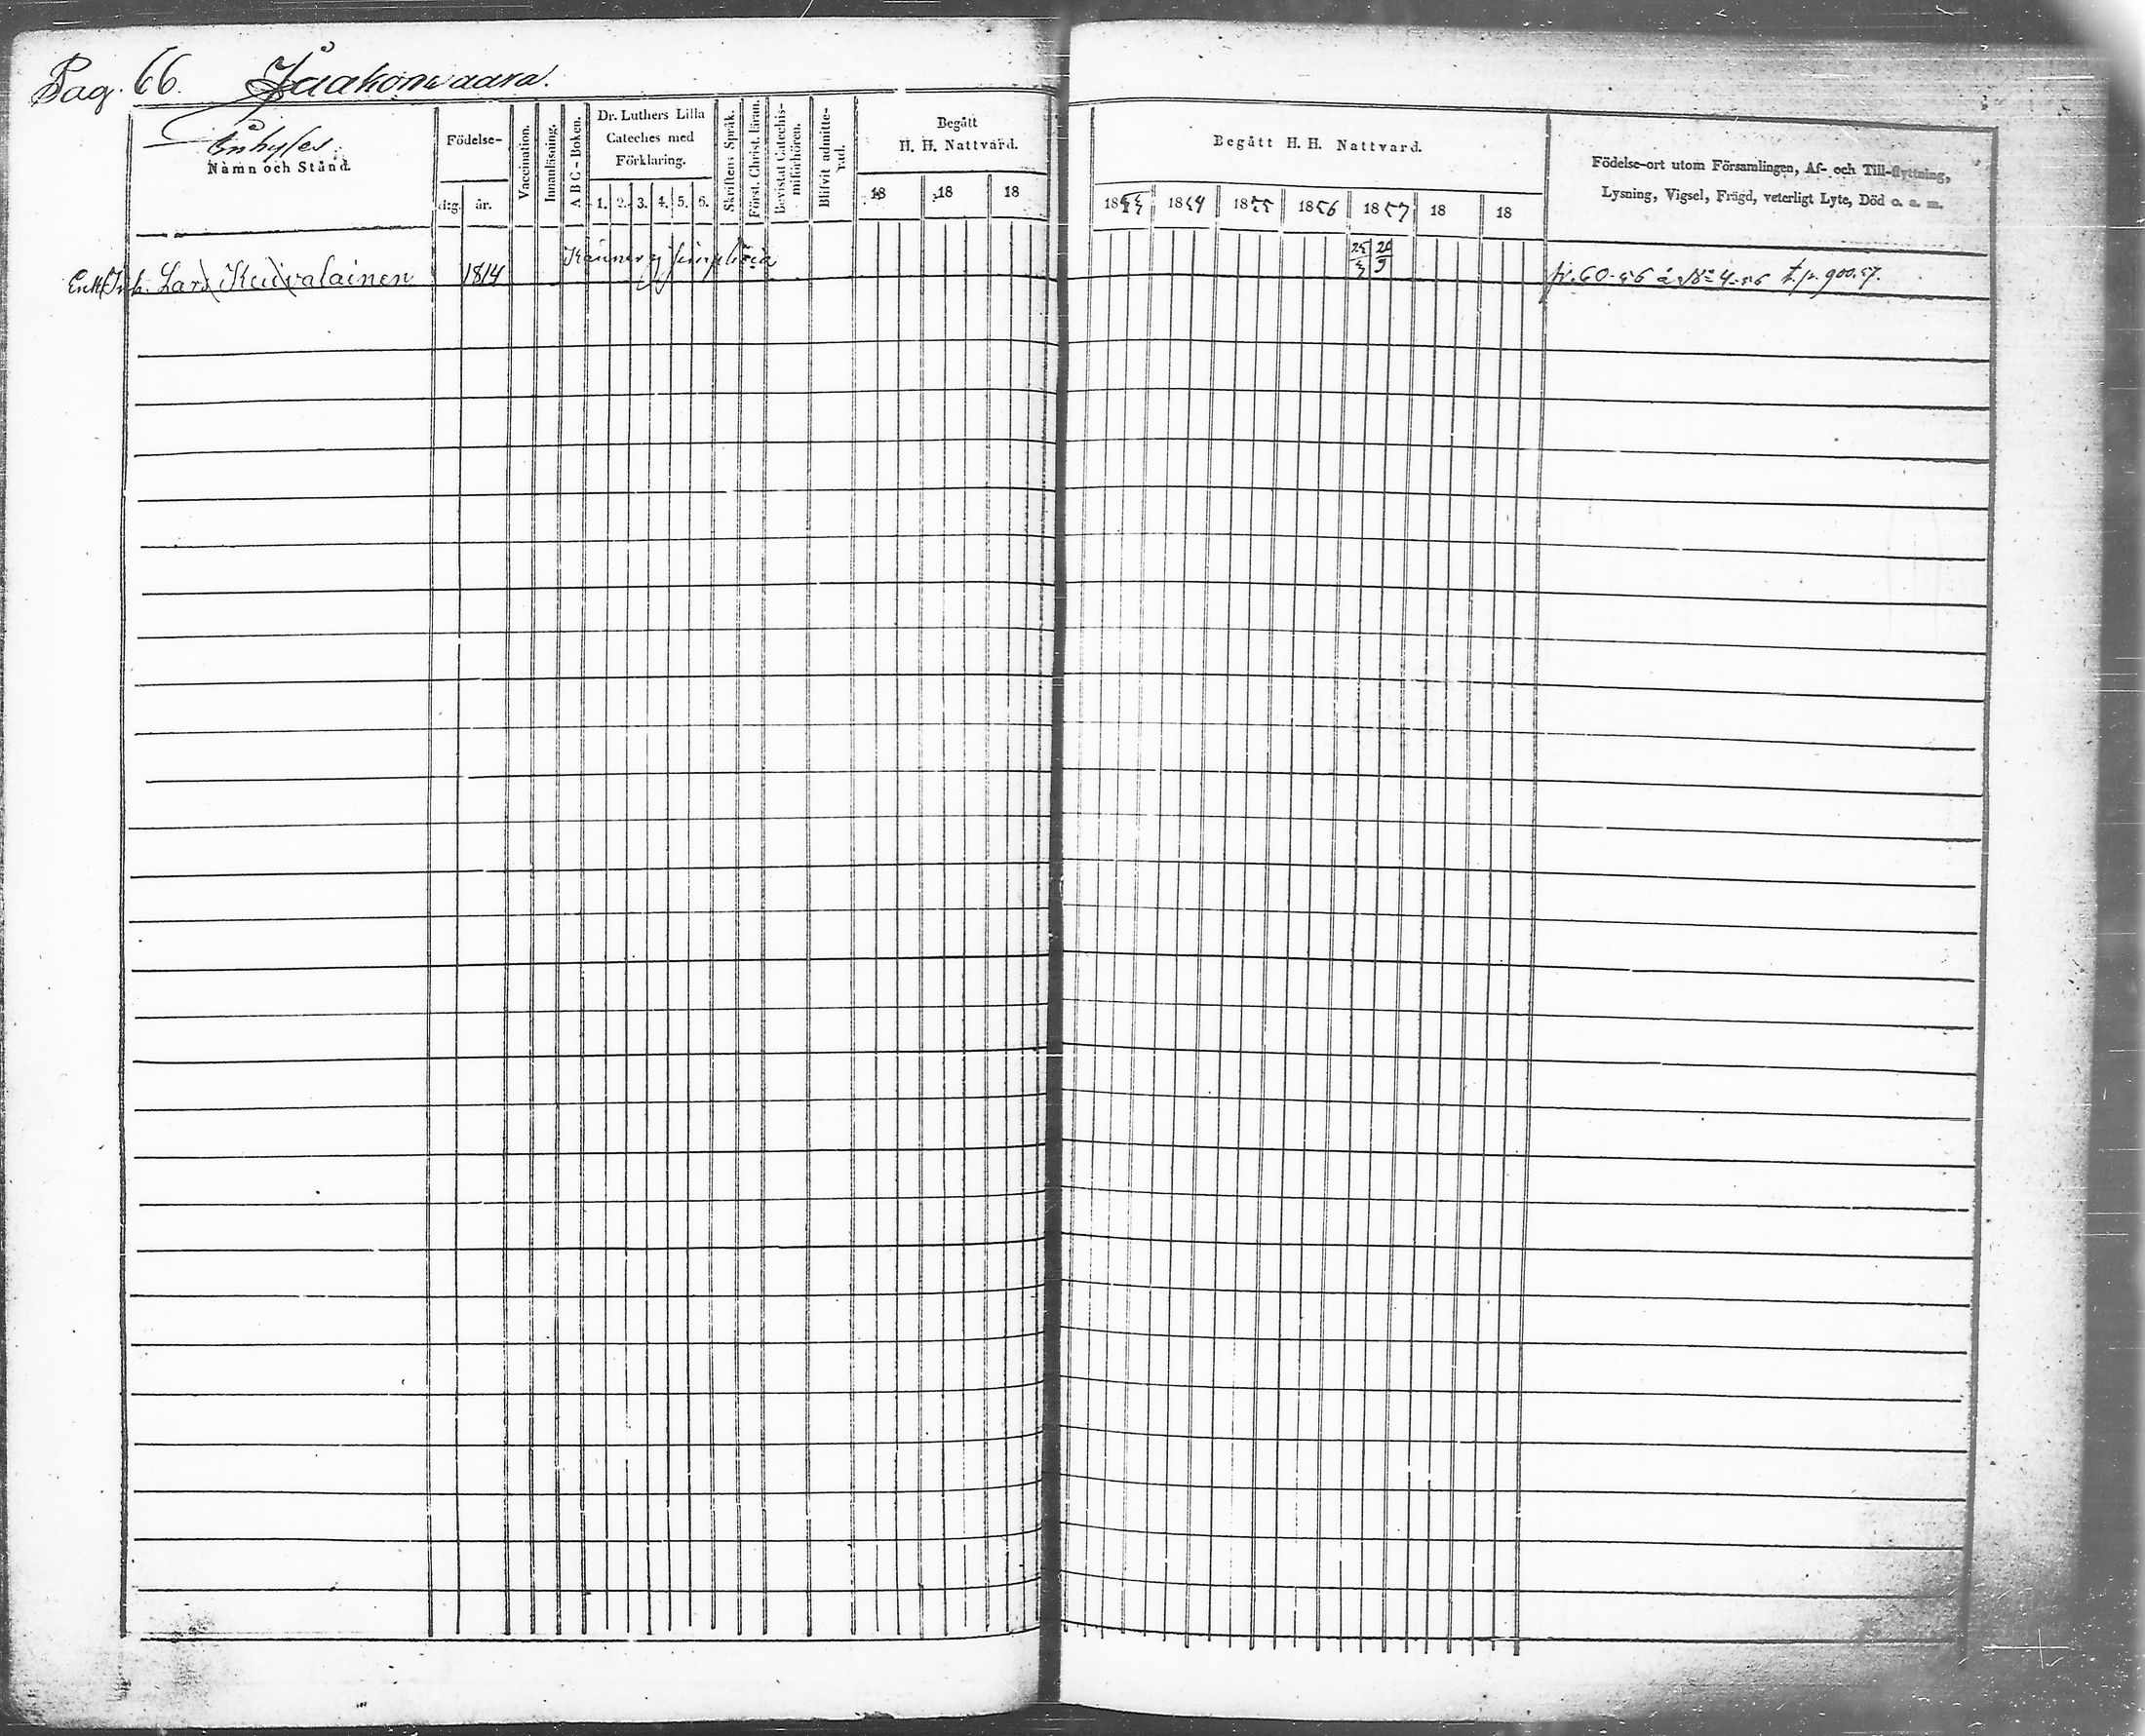 Pag. 66. Jaakonvaara.
Inhyses
Namn och Stånd.
Födelse-
dag. år.
Vaccination.
Innanläsning.
A B C - Boken.
Dr. Luthers Lilla
Cateches med
Förklaring.
1. 2. 3. 4. 5. 6.
Skriftens Språk.
Först. Christ. läran.
Bevistat Catechis-
miförhören.
Blifvit admitte-
rad.
Begått
H. H. Nattvard.
18 18 18
Begått H. H. Nattvard.
1853 1854 1855 1856 1857 18 18
Födelse-ort utom Församlingen, Af- och Till-flyttning,
Lysning, Vigsel, Frägd, veterligt Lyte, Död o. s. m.
Enkl. Inh. Lars Kuivalainen 1814 Känner ej simplicia fr. 60-56 å № 4-56 t. p. 900.57.